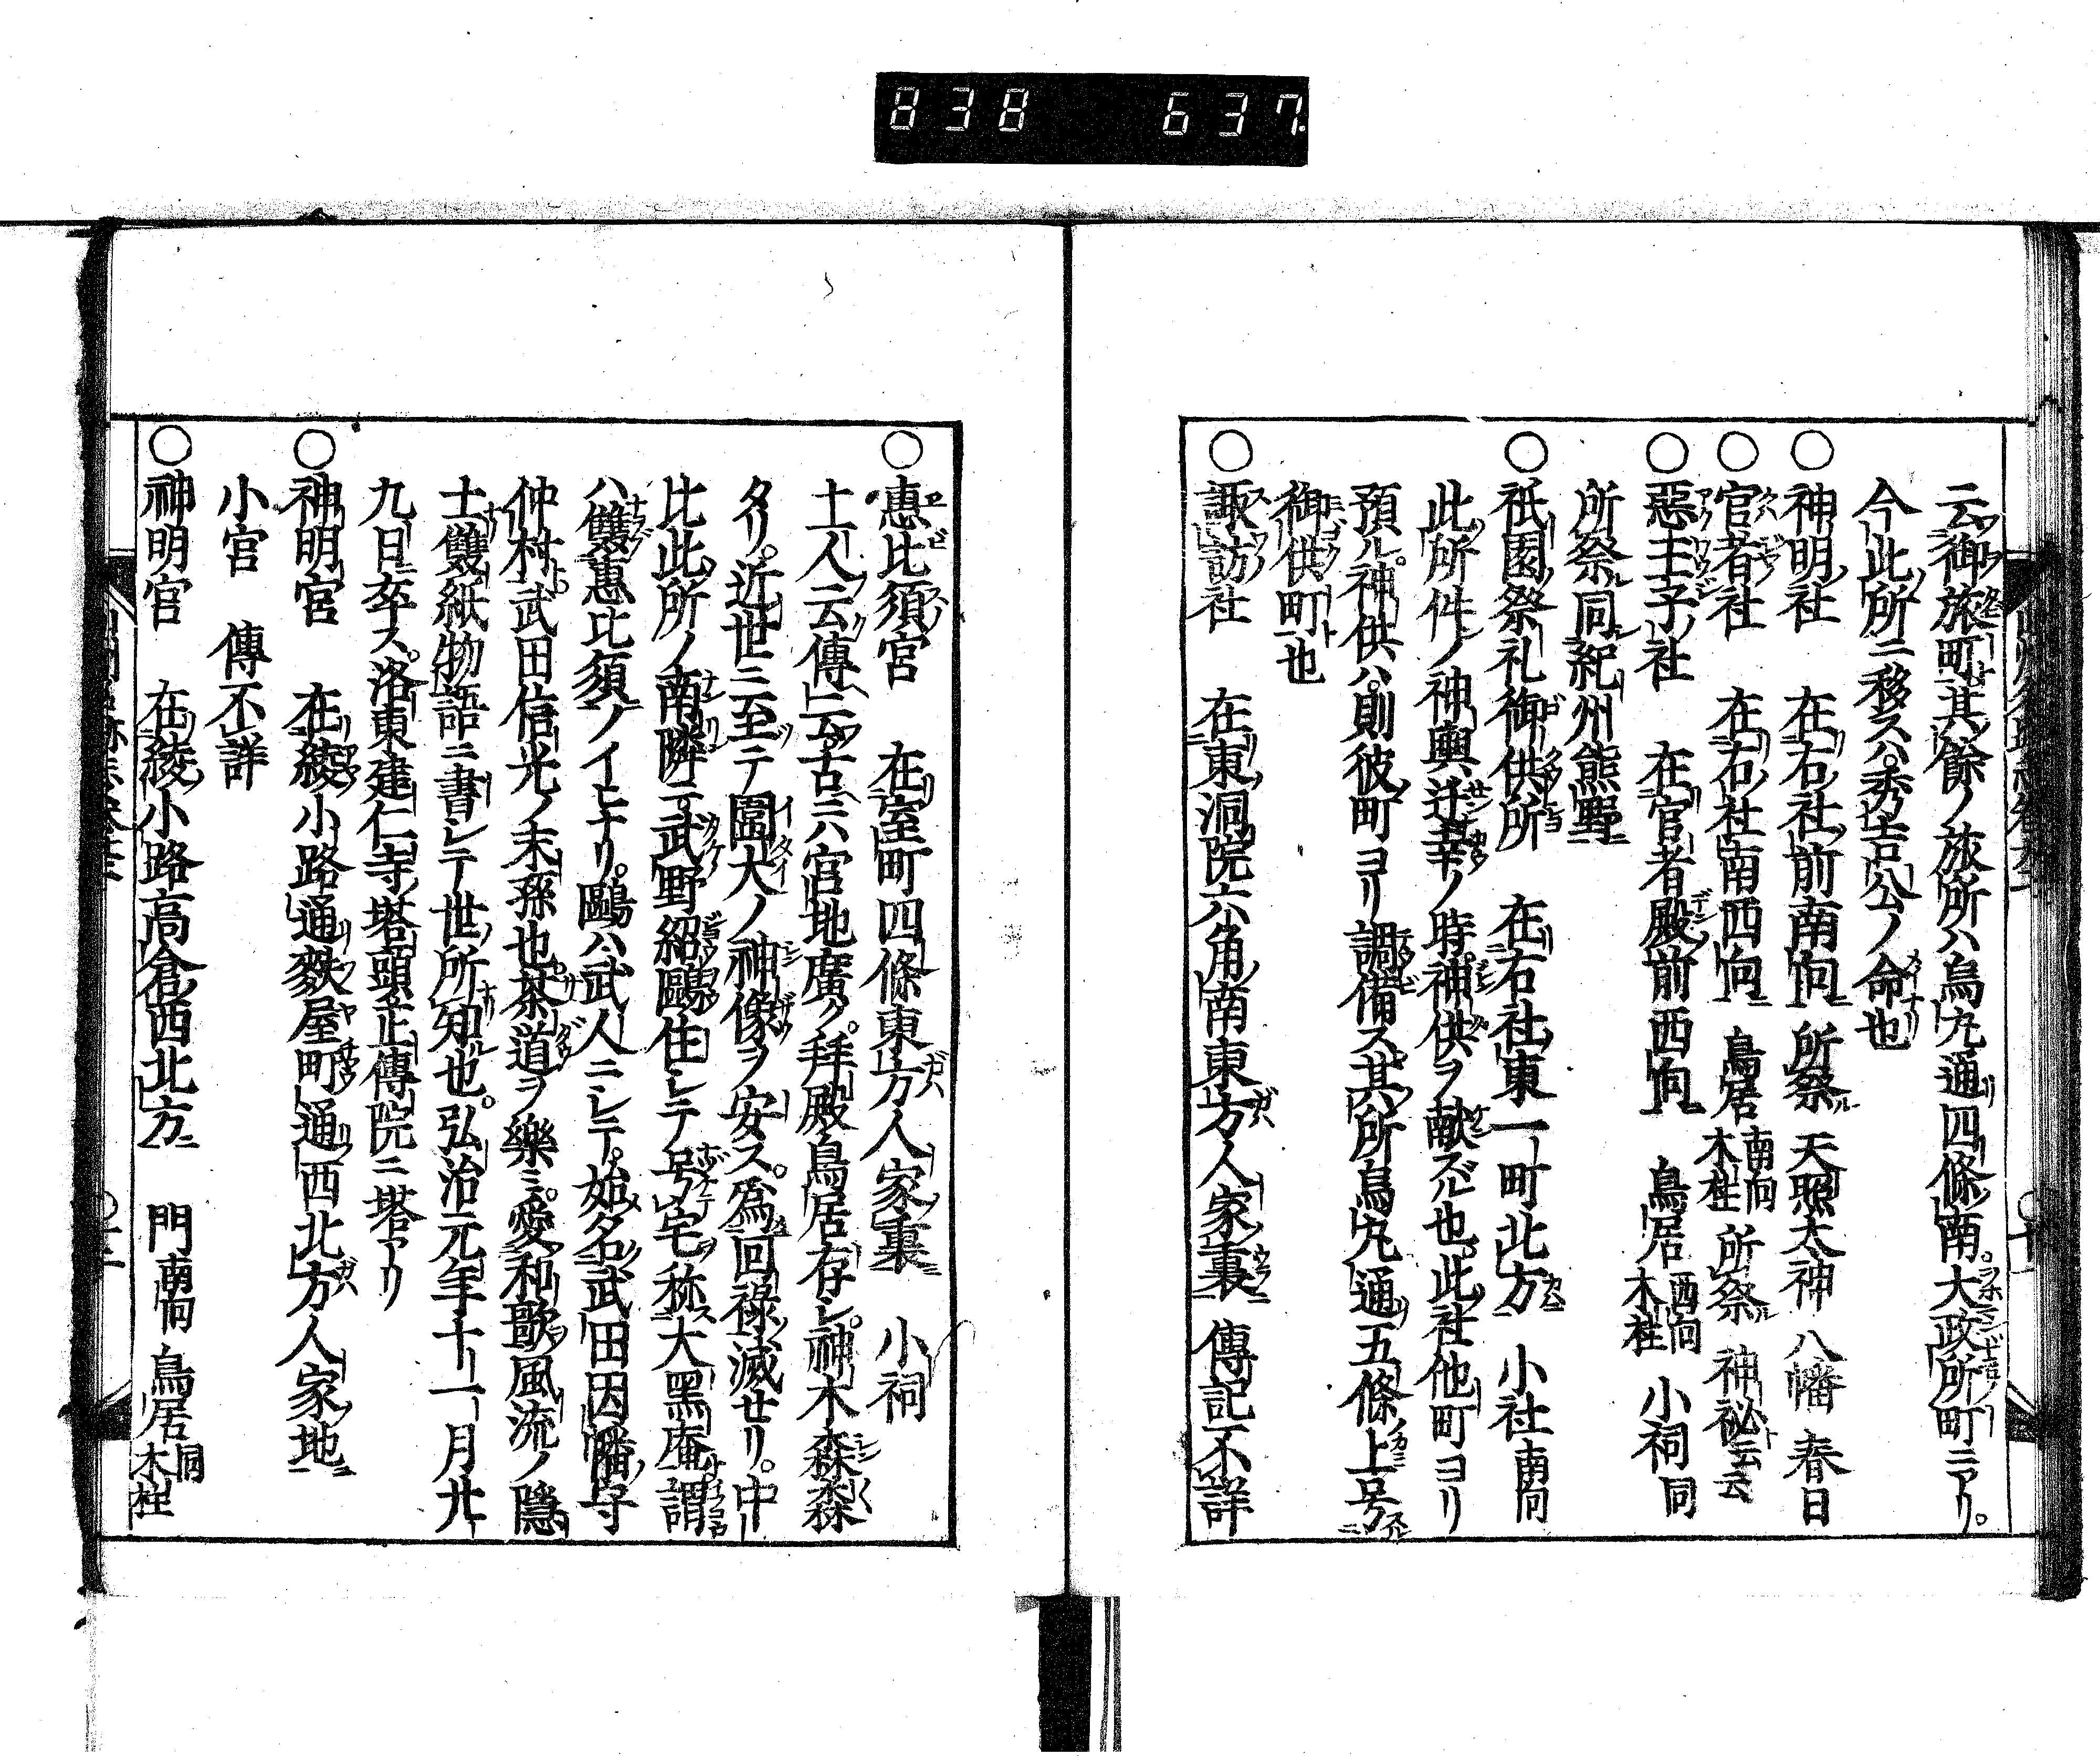 838 637
云御旅町其餘ノ旅所ハ烏丸通四條南大政所町ニアリ。
今此所ニ移スハ秀吉公ノ命也
○神明社 在右社前南向 所祭 天照太神 八幡 春日
○官者社 在右社南西向 鳥居 南向木柱 所祭 神祕云云
○惡王子社 在官者殿前西向 鳥居 西向木柱 小祠 同
所祭同紀州熊野
○祇園祭礼御供所 在右社東一町北方 小社 南向
此所件ノ神輿迁幸ノ時神供ヲ献ズル也此社他町ヨリ
預ル神供ハ則彼町ヨリ調備ス其所烏丸通五條上号
御供町也
○諏訪社 在東洞院六角南東方人家裏 傳記不詳
○惠比須宮 在室町四條東方人家裏 小祠
土人云傳云古ニハ宮地廣ク拜殿鳥居存シ神木森森
タリ。近世ニ至テ圍大ノ神像ヲ安ス。爲回祿滅セリ。中
比此所ノ南隣ニ武野紹鷗住シテ号宅称大黑庵謂
ハ雙惠比須ノイヒナリ。鷗ハ武人ニシテ。始名武田因幡守
仲村武田信光ノ末孫也茶道ヲ樂ミ愛和歌風流ノ隱
士雙紙物語ニ書シテ世所知也。弘治元年十一月廿
九日卒ス洛東建仁寺塔頭正傳院ニ塔アリ
○神明宮 在綾小路通麩屋町通西北方人家地
小宮 傳不詳
○神明宮 在綾小路高倉西北方 門南向 鳥居 同木柱